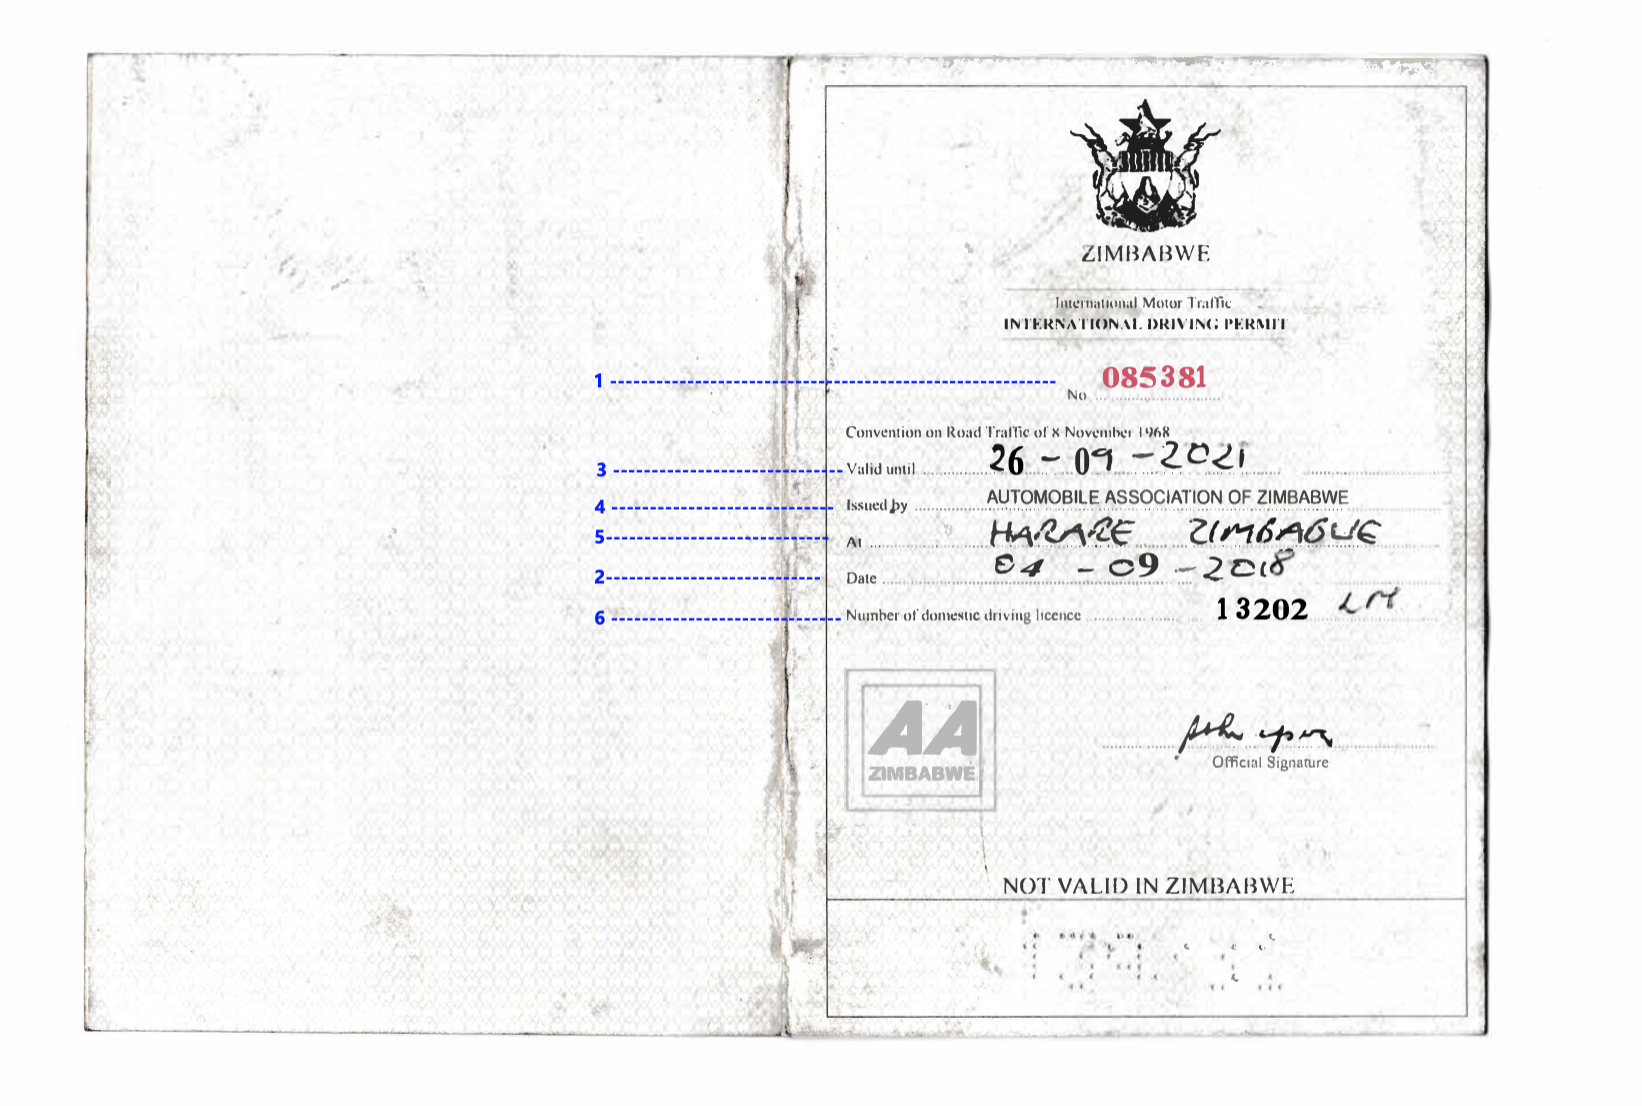 ZIMBABWE
International Motor Traffic
INTERNATIONAL DRIVING PERMIT
1
085381
No
Convention on Road Traffic of 8 November 1968
3 Valid until 26 - 09 - 2021
4 Issued by AUTOMOBILE ASSOCIATION OF ZIMBABWE
5 At HARARE ZIMBABWE
2 Date 04 - 09 - 2018
6 Number of domestic driving licence 13202 LM
AA
ZIMBABWE
Official Signature
NOT VALID IN ZIMBABWE